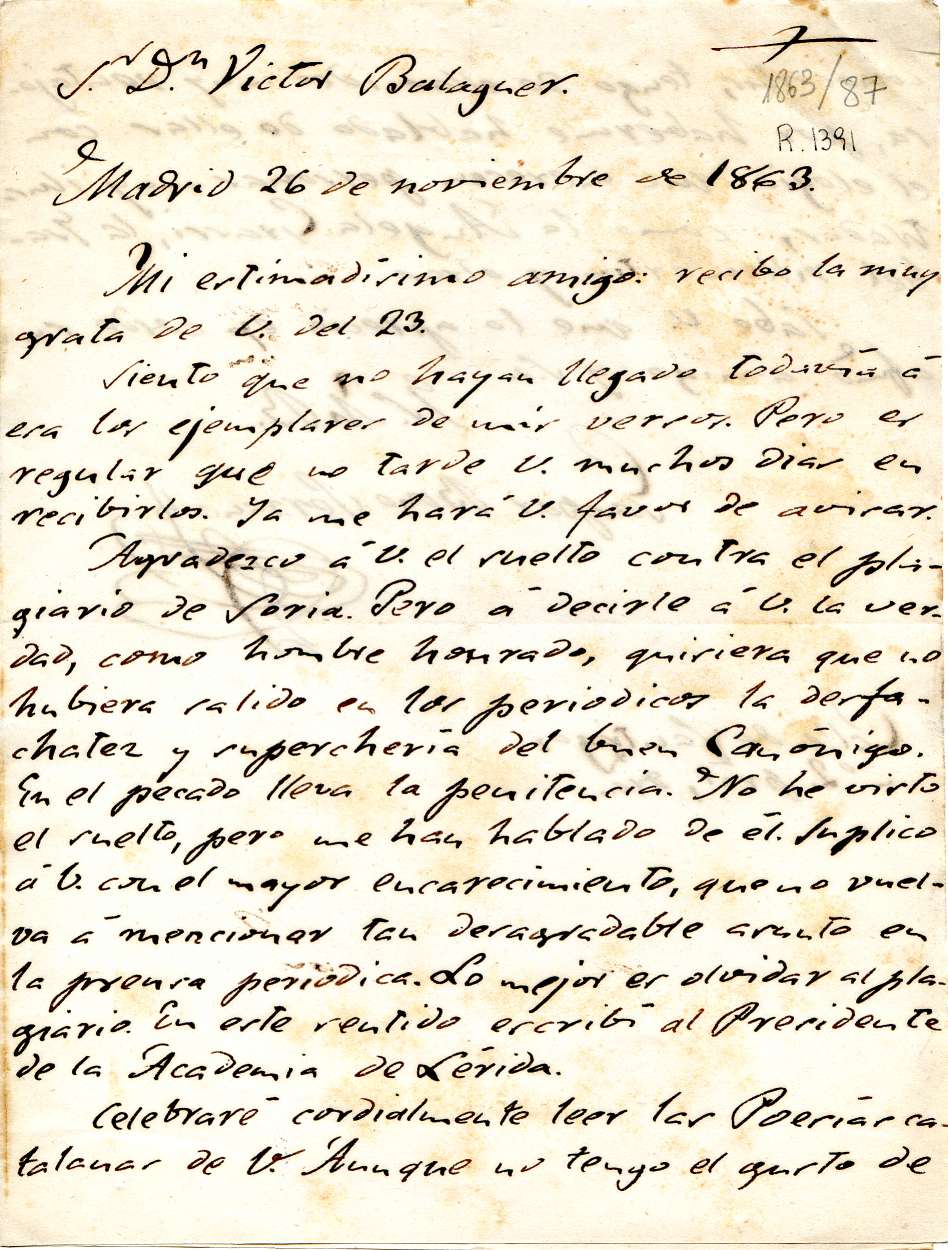 Sr. Dn. Victor Balaguer.
1863/87
R. 1391
Madrid 26 de noviembre de 1863.
Mi estimadísimo amigo: recibo la muy
grata de V. del 23.
Siento que no hayan llegado todavía á
esa los ejemplares de mis versos. Pero es
regular que no tarde V. muchos dias en
recibirlos. Ya me hará V. favor de avisar.
Agradezco á V. el suelto contra el pla-
giario de Soria. Pero á decirle á V. la ver-
dad, como hombre honrado, quisiera que no
hubiera salido en los periodicos la desfa-
chatez y superchería del buen Canónigo.
En el pecado lleva la penitencia. No he visto
el suelto, pero me han hablado de él. Suplico
á V. con el mayor encarecimiento, que no vuel-
va á mencionar tan desagradable asunto en
la prensa periodica. Lo mejor es olvidar al pla-
giario. En este sentido escribí al Presidente
de la Academia de Lérida.
Celebraré cordialmente leer las Poesías ca-
talanas de V. Aunque no tengo el gusto de